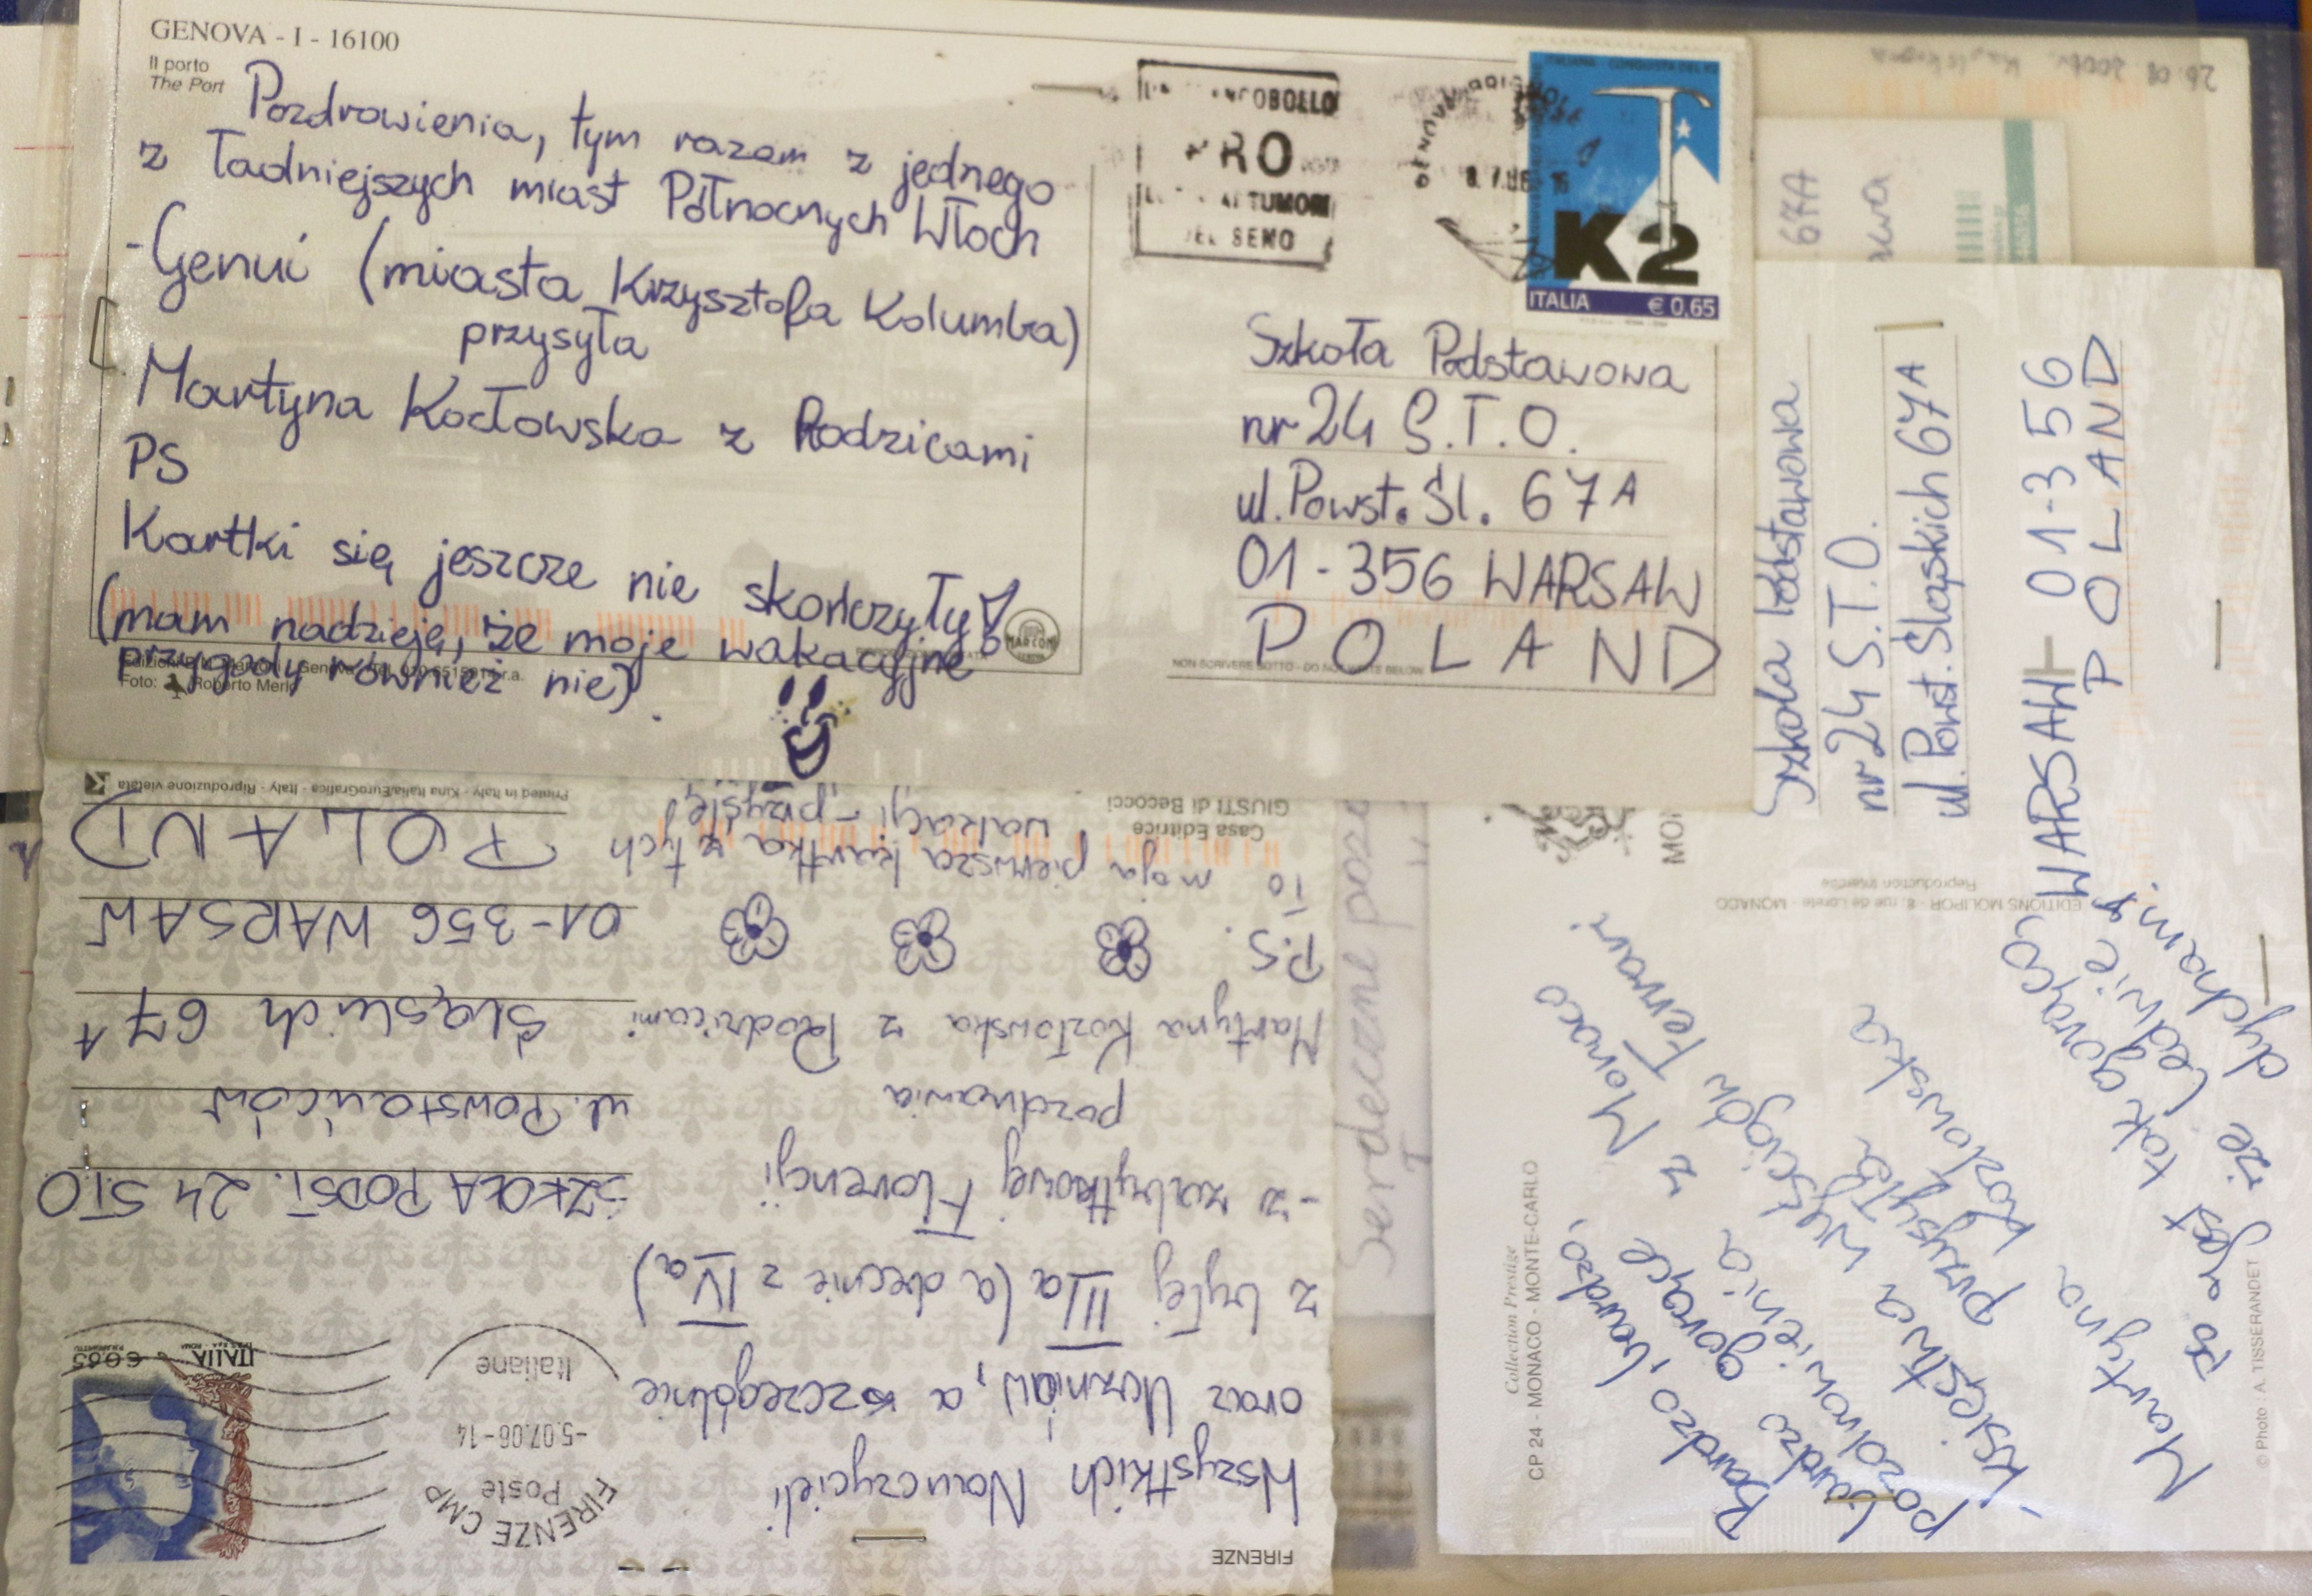 GENOVA - I - 16100
Il porto
The Port
Pozdrowienia, tym razem z jednego
z ładniejszych miast Północnych Włoch
-Genui (miasta Krzysztofa Kolumba)
przysyła
Martyna Kozłowska z Rodzicami
PS
Kartki się jeszcze nie skończyły!
(mam nadzieję, że moje wakacyjne
przygody również nie).
Foto: Roberto Merlo
MARCONI
PRO
TUMORI
DEL SENO
K2
ITALIA € 0,65
Szkoła Podstawowa
nr 24 S.T.O.
ul. Powst. Śl. 67A
01-356 WARSAW
POLAND
NON SCRIVERE SOTTO - DO NOT WRITE BELOW
26.08.2006r.
67A
Szkoła Podstawowa
nr 24 S.T.O.
ul. Powst. Śląskich 67A
WARSAW 01-356
POLAND
EDITIONS MOLIPOR - 8, rue de Lorete - MONACO
Reproduction interdite
Collection Prestige
CP 24 - MONACO - MONTE-CARLO
Bardzo, bardzo,
bardzo gorące
pozdrowienia z Monaco
- Księstwa wyścigów Ferrari
przysyła
Martyna Kozłowska
PS Jest tak gorąco,
że ledwie
dycham!
© Photo A. TISSERANDET
Serdeczne
FIRENZE
Wszystkich Nauczycieli
oraz Uczniów, a szczególnie
z byłej IIIa (a obecnie z IVa)
- z zabytkowej Florencji
pozdrawia
Martyna Kozłowska z Rodzicami
P.S.
To moja pierwsza kartka z tych
wakacji
Casa Editrice
GIUSTI di Becocci
FIRENZE CMP
Poste
-5.07.06-14
Italiane
ITALIA € 0,65
SZKOŁA PODST. 24 STO
ul. Powstańców
Śląskich 67A
01-356 WARSAW
POLAND
Printed in Italy - Kina Italia/EuroGrafica - Italy - Riproduzione vietata